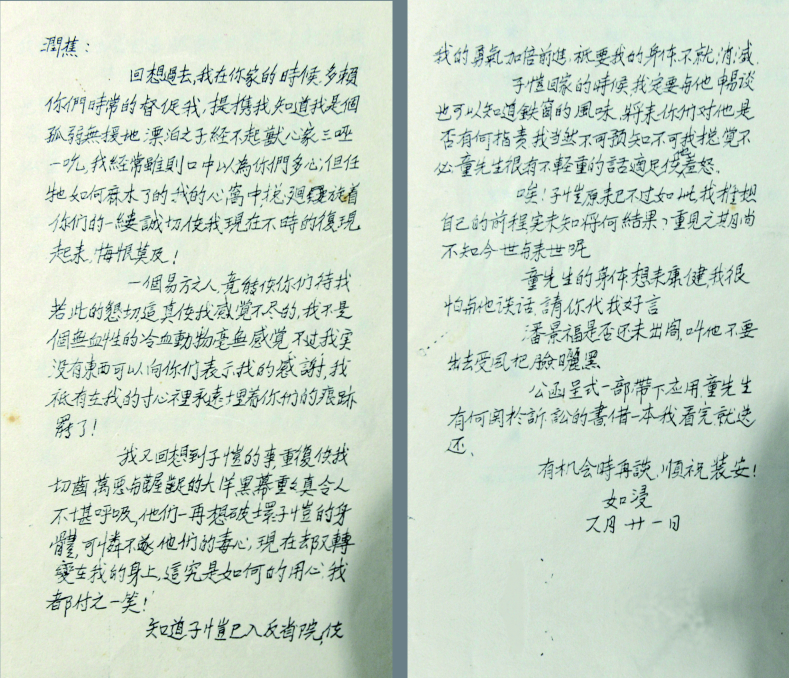 潤蕉：
回想過去，我在你家的時候，多賴
你們時常的督促我，提携我，知道我是個
孤弱無援地漂泊之子，經不起獸心家三唑
一吮，我經常雖則口中以為你們多心，但任
牠如何麻木了的我的心窩中，總迴旋着
你們的一縷誠切使我現在不時的復現
起来，悔恨莫及！
一個易方之人，竟能使你们待我
若此的懇切這真使我感覺不尽的，我不是
個無血性的冷血動物毫無感覺，不过我实
没有東西可以向你们表示我的感謝，我
祗有在我的寸心裡永遠埋着你們的痕跡
罷了！
我又回想到子愷的事，重復使我
切齒，萬惡与齷齪的大洋黑幕重重真令人
不堪呼吸，他们一再想破壞子愷的身
體，可憐不遂他們的毒心，現在却又轉
變在我的身上，這究是如何的用心，我
都付之一笑！
知道子愷已入反省院，使
我的勇氣加倍前進，祗要我的身体不就消滅，
子愷回家的時候，我定要与他暢谈
也可以知道鉄窗的風味，將来你们对他是
否有何指责我当然不可预知，不可我總覺不
必，童先生很有不輕重的話適足使他羞怒。
唉！子愷原来已不过如此，我推想
自己的前程实未知得何結果？重見之期尚
不知今世与来世呢
童先生的身体想来康健，我很
怕与他谈话，請你代我好言
潘景福是否还未出閣，叫他不要
出去受風把臉曬黑
公函呈式一部帶下应用，童先生
有何関於訴訟的書借一本我看完就送
还，
有机会時再談，順祝裝安！
如浸
又月廿一日